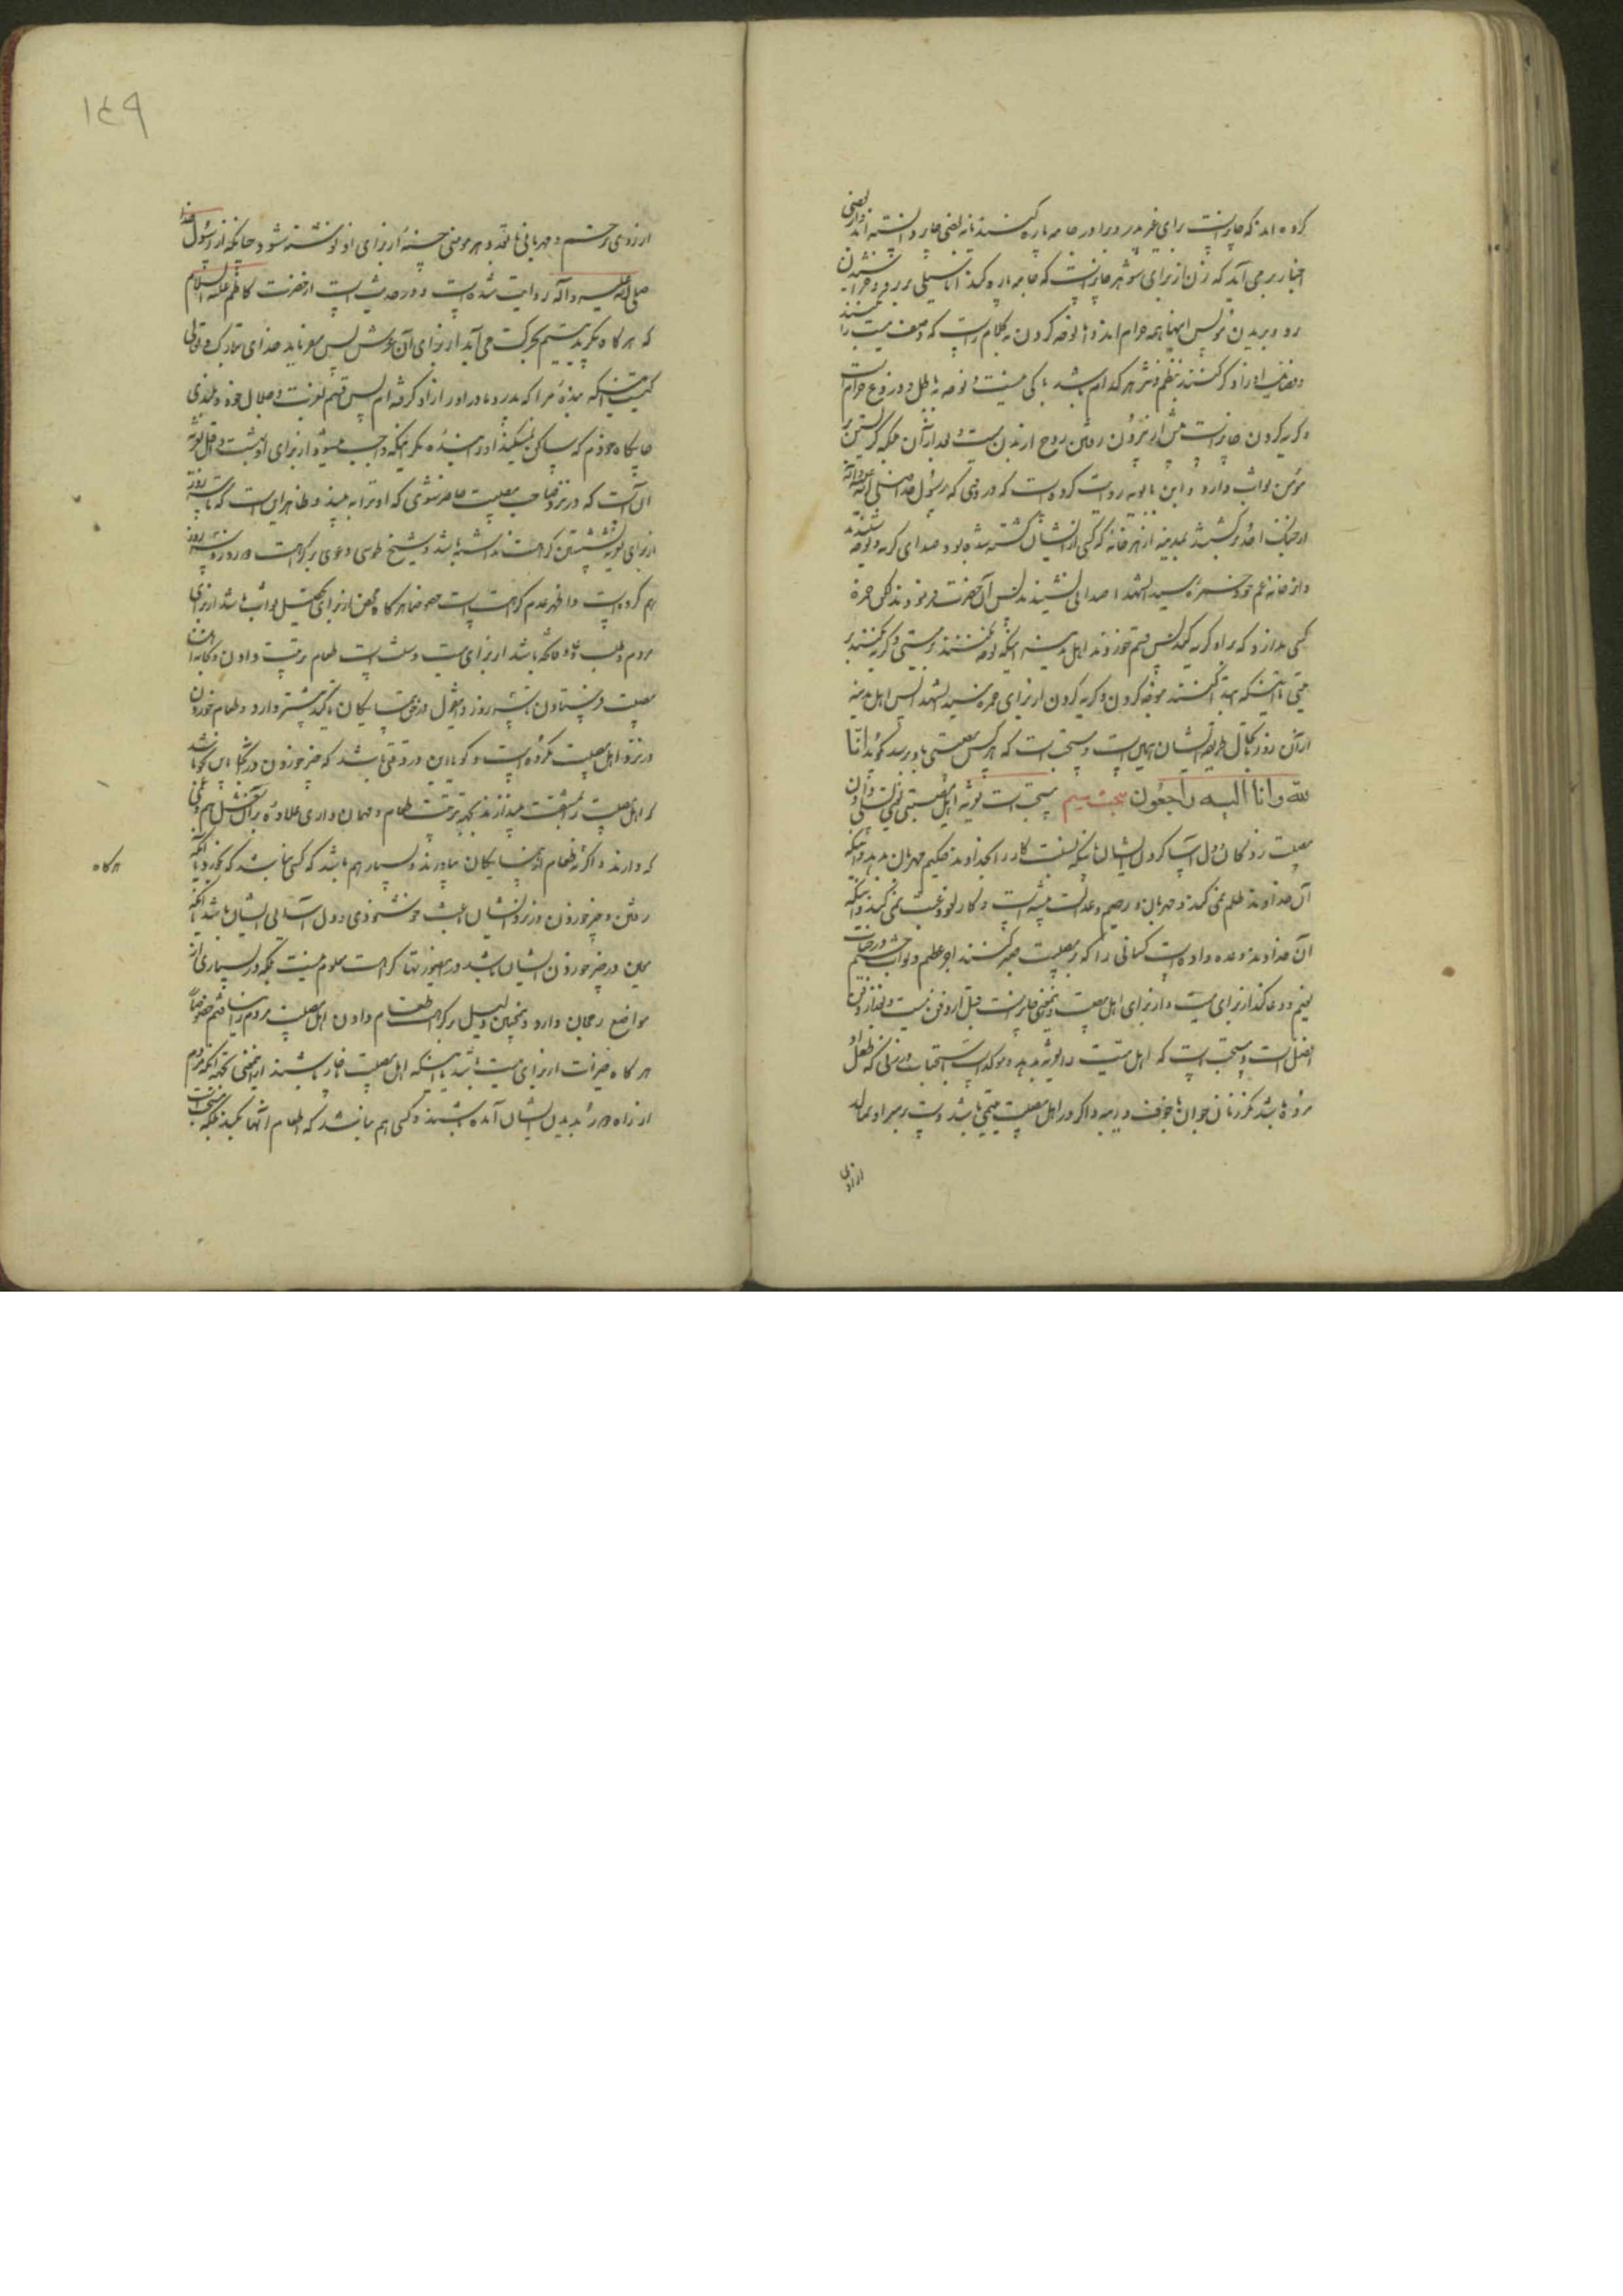 کرده اند که جایز نیست برای غیر پدر و برادر جامه پاره کنند نه بعضی جایز دانسته اند و از بعضی
اخبار بر می آید که زن از برای شوهر جایز نیست که جامه پاره کند اما سیلی بر رو و خراشیدن
رو و بریدن مو پس اینها همه حرام اند و اما نوحه کردن به کلام راست که وصف میت را
کنند بنظم و نثر هر که ام باشد باکی نیست و نوحه باطل و دروغ حرام است
و گریه کردن جایز است پیش از بیرون رفتن روح از بدن میت و بعد از آن بلکه گریستن بر
مؤمن ثواب دارد و ابن بابویه روایت کرده است که در وقتی که رسول خدا صلی الله علیه وآله
از جنک احد برگشتند بمدینه از هر خانه که کسی از ایشان کشته شده بود صدای گریه و نوحه شنیدند
و از خانه عم خود حمزه سید الشهدا صدایی نشنیدند پس آن حضرت فرمودند لکن حمزه
کسی ندارد که بر او گریه کند پس قسم خوردند اهل مدینه اینکه نوحه نکنند بر میتی و گریه نکنند بر
میتی تا اینکه ابتدا کنند بنوحه کردن و گریه کردن از برای حمزه سید الشهدا پس اهل مدینه
از آن روز تا بحال طریقه ایشان همین است و مستحب است که هر کس مصیبتی باو رسد گوید انّا
لله وانا الیه راجعون مبحث سیم مستحب است تعزیه اهل مصیبت یعنی تسلی دادن
مصیبت زدگان و دل آسا کردن ایشان باینکه نسبت کار را بخداوند حکیم مهربان بدهد و اینکه
آن خداوند ظلم نمی کند و مهربان و رحیم و عدالت پیشه است و کار لغو و عبث نمی کند و اینکه
آن خداوند وعده داده است کسانی را که بر مصیبت صبر کنند اجر عظیم و ثواب جسیم
و دعا کند از برای میت و از برای اهل مصیبت و تعزیه جایز است قبل از دفن میت و بعد از دفن
افضل است و مستحب است که اهل میت را تعزیه بدهد و موکد است استحباب در زنی که طفل او
مرده باشد مگر زنان جوان با خوف ریبه و اگر در اهل مصیبت یتیمی باشد دست بر سر او بمالد
از روی
١٤٩
از روی ترحم و مهربانی باندازه هر موئی حسنه از برای او نوشته شود چنانکه از رسول خدا
صلی الله علیه وآله روایت شده است و در حدیث است از حضرت کاظم علیه السلام
که هر گاه بگرید یتیم بحرکت می آید از برای آن عرش پس میفرماید خدای تبارک و تعالی
کیست اینکه بنده مرا که پدر و مادر او را از او گرفته ام پس قسم بعزت و جلال خود و بلندی
جایگاه خودم که ساکن نمیکند او را بنده مگر اینکه واجب میشود از برای او بهشت و اقل تعزیه
آن است که در نزد صاحب مصیبت حاضر شوی که او ترا به بیند و ظاهر این است که تا سه روز
از برای تعزیه نشستن کراهت نداشته باشد و شیخ طوسی دعوی بر کراهت دو روز و سه روز
هم کرده است و اظهر عدم کراهت است خصوصا هر گاه از برای تحصیل ثواب باشد از برای
مردم و طلب دعا و فاتحه باشد از برای میت و سنت است طعام ترتیب دادن و بخانه اهل
مصیبت فرستادن تا سه روز و این در حق همسایگان تاکید بیشتر دارد و طعام خوردن
در نزد اهل مصیبت مکروه است و گویا این در وقتی باشد که چیز خوردن در نزد ایشان باعث شود
که اهل مصیبت بمشقت بیندازند بجهة ترتیب طعام و مهمان داری علاوه بر آن
که دارند و اگر نه طعام از همسایگان بیاورند و بسیار هم باشد که کسی نباشد که بخورد یا اینکه
رفتن و چیز خوردن در نزد ایشان باعث خوشنودی و دل آسایی ایشان باشد یا اینکه
معین در چیز خوردن ایشان باشد در اینصورتها کراهت معلوم نیست بلکه در بسیاری از
مواضع رجحان دارد و همچنین دلیل بر کراهت طعام دادن اهل مصیبت بمردم را نیافتم خصوصاً
هر گاه خیرات از برای میت باشد یا اینکه اهل مصیبت ناچار باشند از این معنی بجهة آنکه مردم
از راه دور بدیدن ایشان آمده باشند و کسی هم نباشد که اطعام آنها بکند بلکه مستحب است
هر گاه